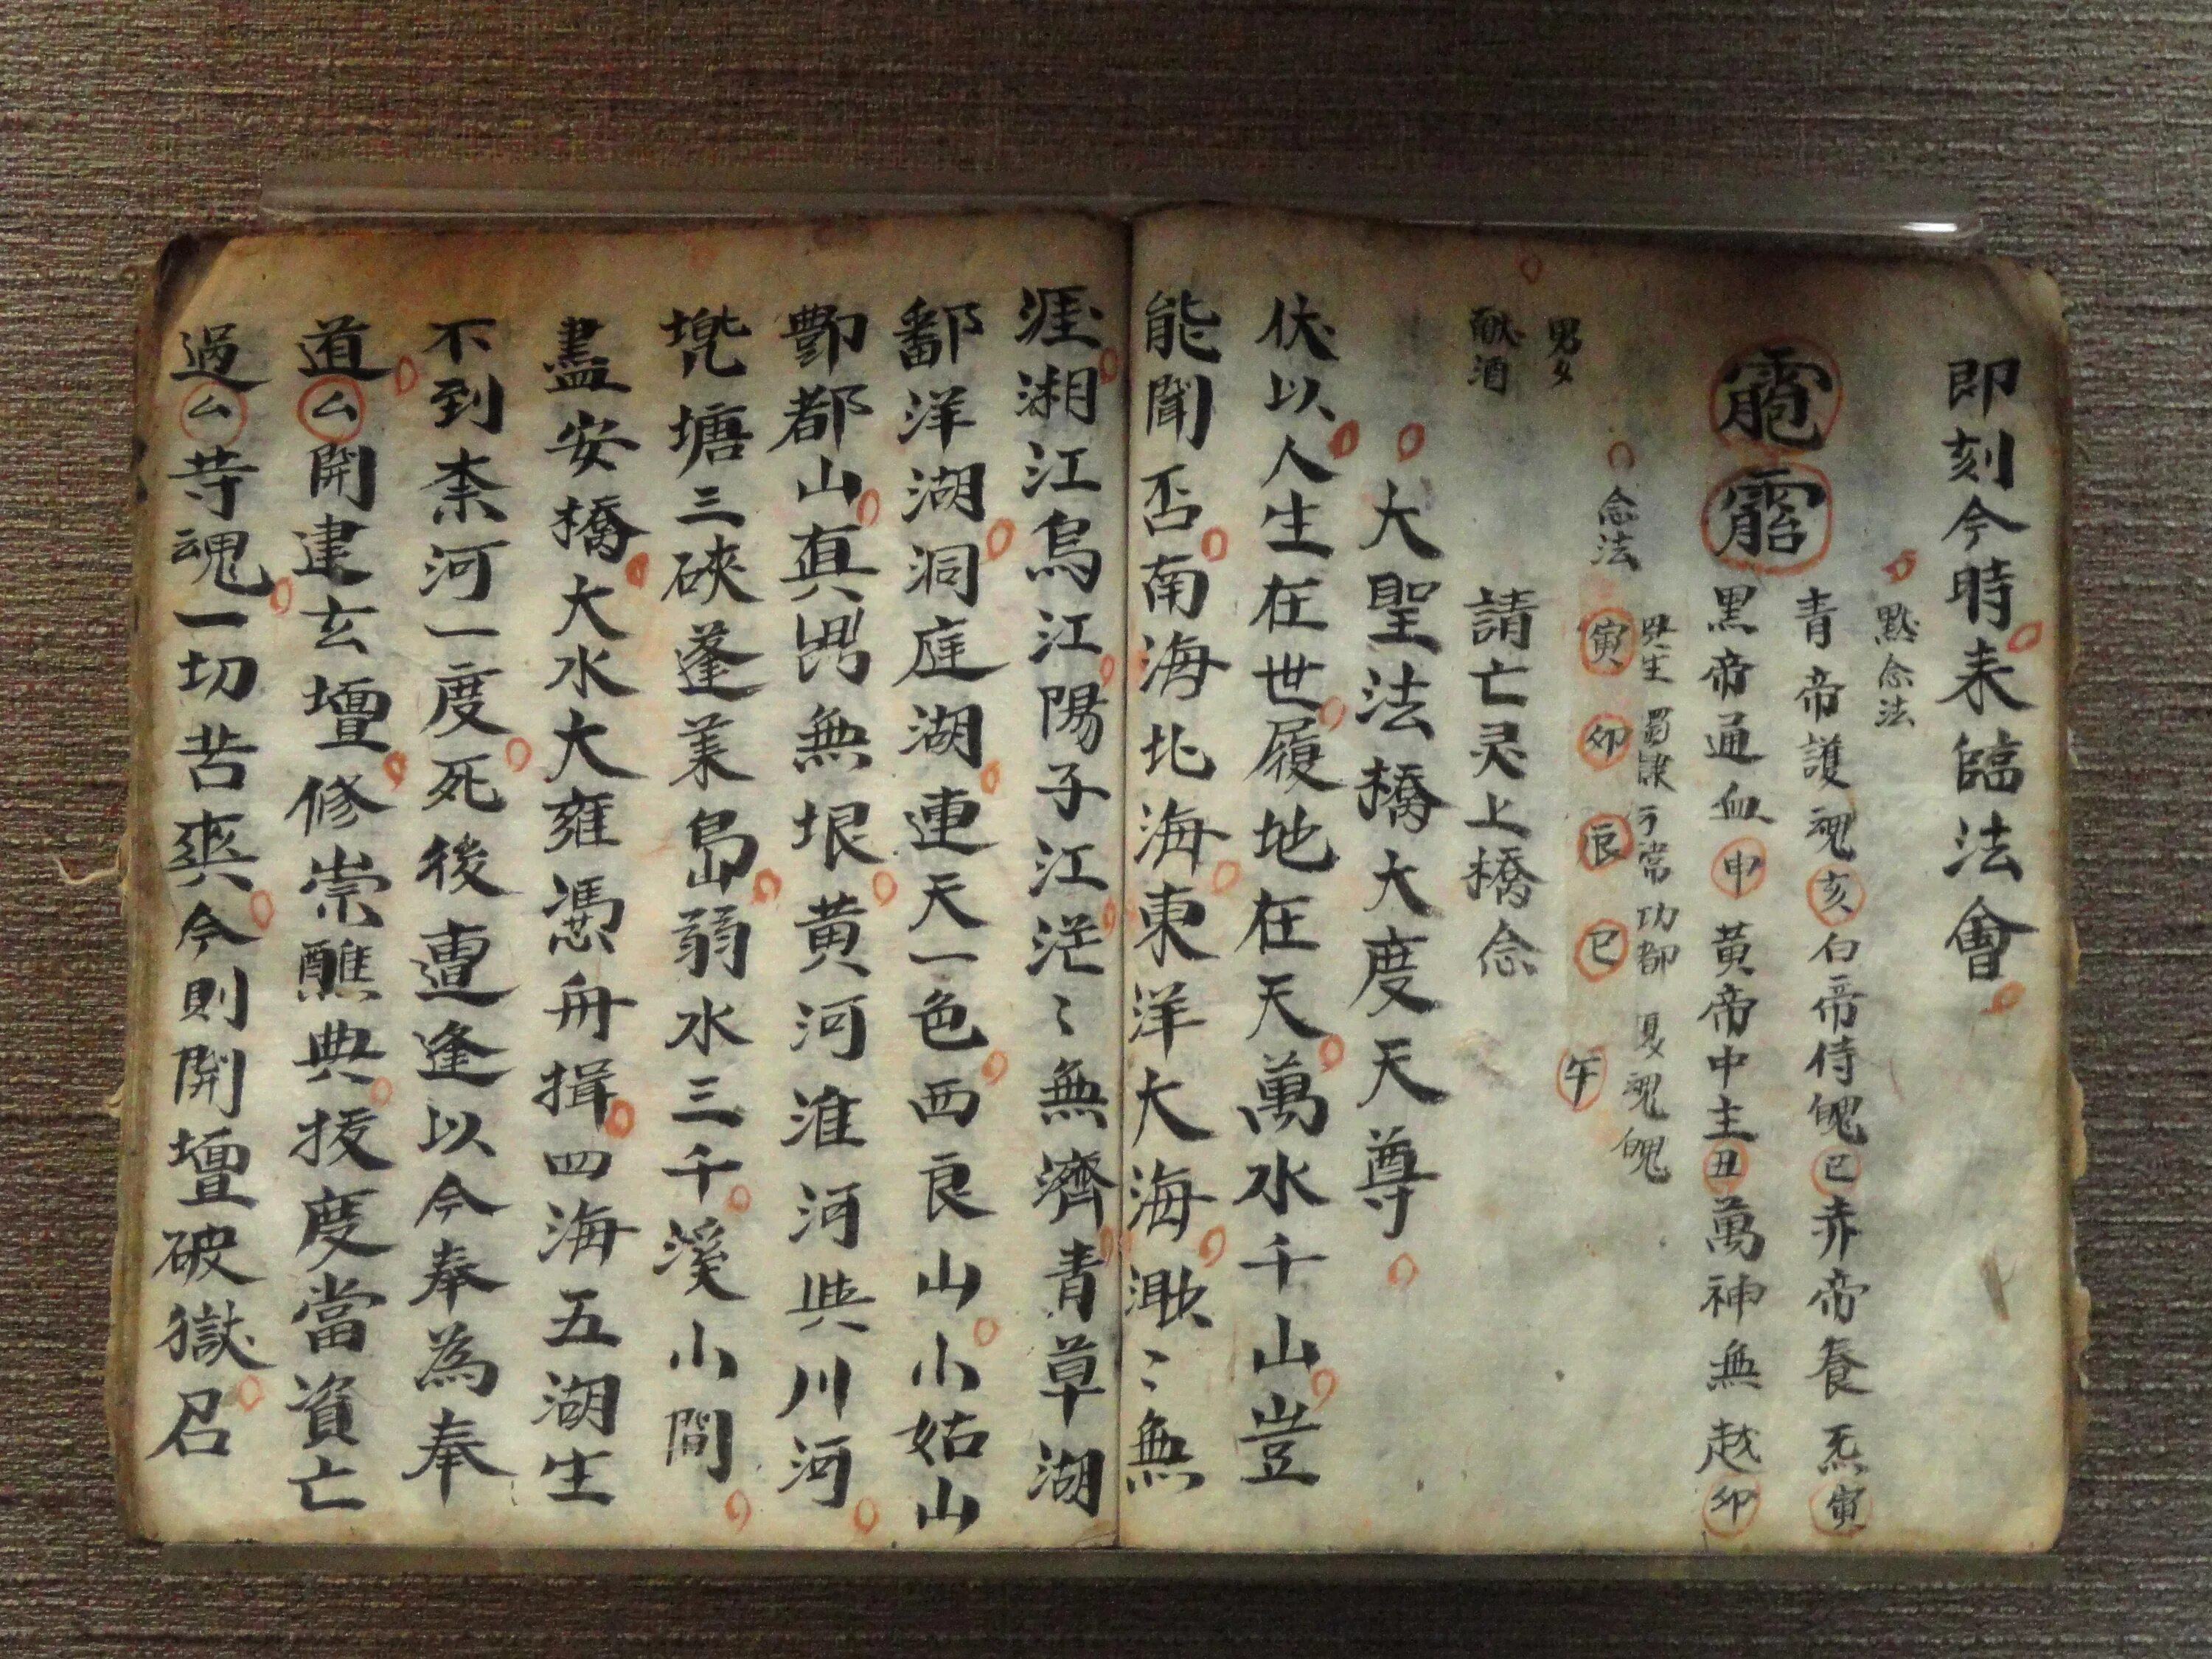 即刻今時来臨法會
默念法
青帝護魂亥白帝侍魄巳赤帝養炁寅
黑帝通血申黃帝中主丑萬神無越卯
念法
寅卯辰巳午
男女
献酒
請亡灵上橋念
大聖法橋大度天尊
伏以人生在世履地在天萬水千山豈
能聞否南海北海東洋大海渺〻無
涯湘江烏江陽子江江茫〻無濟青草湖
鄱洋湖洞庭湖連天一色西良山小姑山
酆都山真無垠黄河淮河與川河
塘三硤蓬萊島弱水三千溪小間
盡安橋大水大雍憑舟揖四海五湖生
不到柰河一度死後遭逢以今奉為奉
道厶開建玄壇修崇醮典拔度當資亡
過厶䓁魂一切苦爽今則開壇破獄召